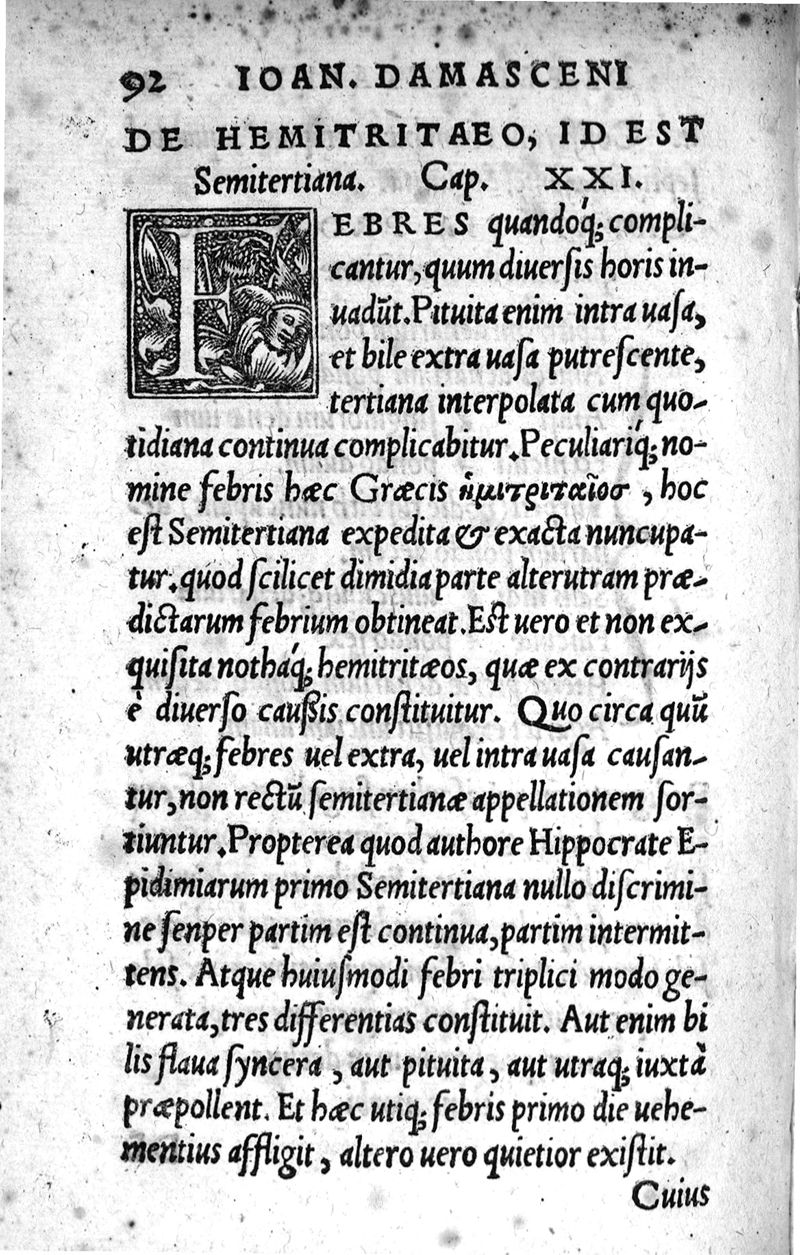 92 IOAN. DAMASCENI
DE HEMITRITAEO, ID EST
Semitertiana. Cap. XXI.
FEBRES quandoq́; compli-
cantur, quum diuersis horis in-
uadūt. Pituita enim intra uasa,
et bile extra uasa putrescente,
tertiana interpolata cum quo-
tidiana continua complicabitur. Peculiariq́; no-
mine febris hæc Græcis ἡμιτριταῖοσ, hoc
est Semitertiana expedita & exacta nuncupa-
tur. quod scilicet dimidia parte alterutram præ-
dictarum febrium obtineat. Est uero et non ex-
quisita nothaq́; hemitritæos, quæ ex contrarijs
è diuerso caußis constituitur. Quo circa quū
utræq; febres uel extra, uel intra uasa causan-
tur, non rectū semitertianæ appellationem sor-
tiuntur. Propterea quod authore Hippocrate E-
pidimiarum primo Semitertiana nullo discrimi-
ne senper partim est continua, partim intermit-
tens. Atque huiusmodi febri triplici modo ge-
nerata, tres differentias constituit. Aut enim bi
lis flaua syncera, aut pituita, aut utraq; iuxtà
præpollent. Et hæc utiq; febris primo die uehe-
mentius affligit, altero uero quietior existit.
Cuius